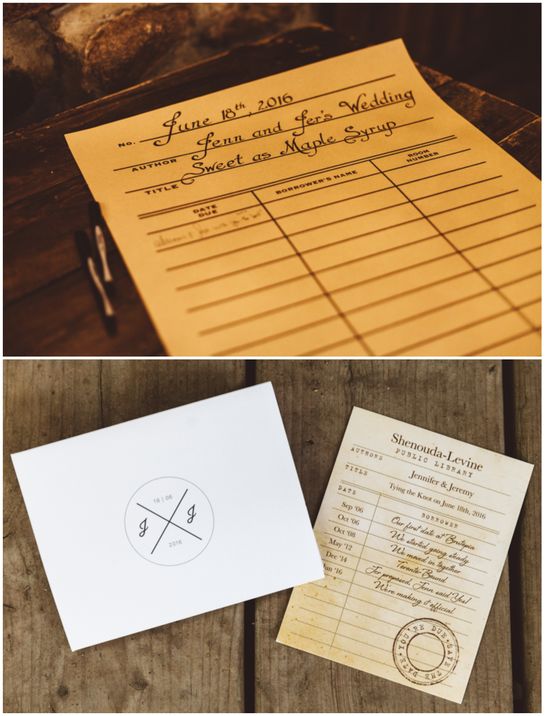 NO. June 18th, 2016
AUTHOR Jenn and Jer's Wedding
TITLE Sweet as Maple Syrup
DATE DUE BORROWER'S NAME ROOM NUMBER
18 | 06
J J
2016
Shenouda-Levine
PUBLIC LIBRARY
AUTHORS
Jennifer & Jeremy
TITLE
Tying the Knot on June 18th, 2016
DATE BORROWER
Sep '06 Our first date at Brutopia
Oct '06 We started going steady
Oct '08 We moved in together
May '12 Toronto Bound
Dec '14 Jer proposed, Jenn said Yes!
Jun '16 We're making it official
YOU'RE DUE. SAVE THE DATE